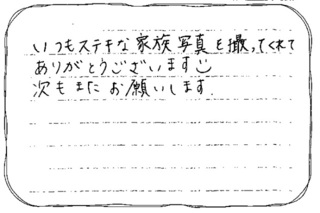 いつもステキな家族写真を撮ってくれて
ありがとうございます☺
次もまたお願いします.